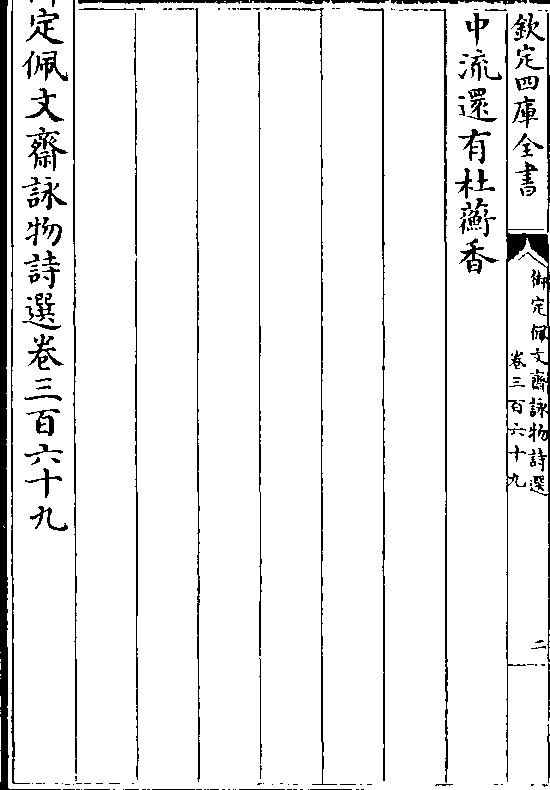 欽定四庫全書
御定佩文齋詠物詩選
卷三百六十九
二
中流還有杜蘅香
御定佩文齋詠物詩選卷三百六十九